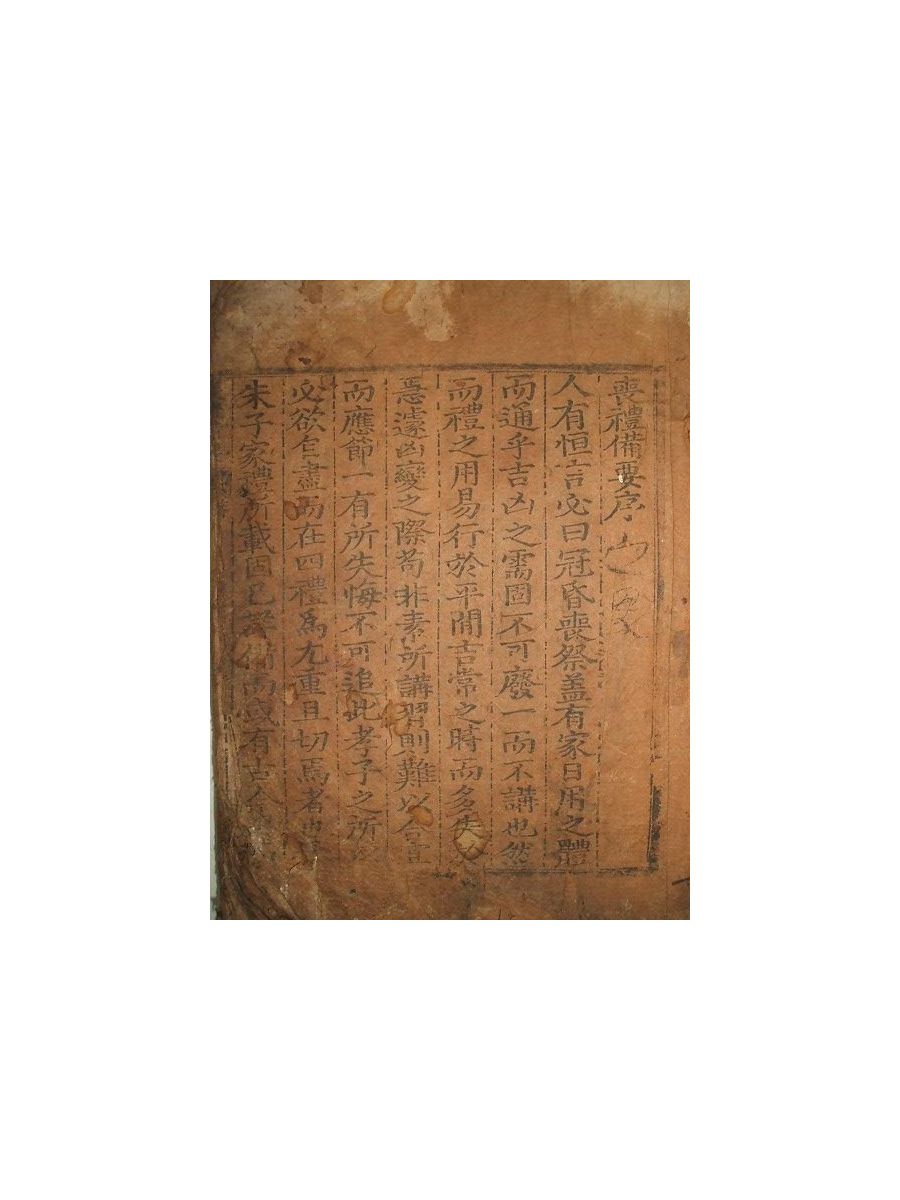 喪禮備要序
人有恒言必曰冠昏喪祭盖有家日用之體
而通乎吉凶之需固不可廢一而不講也然
而禮之用易行於平閒吉常之時而多失於
急遽凶變之際苟非素所講習則難以合宜
而應節一有所失悔不可追此孝子之所
必欲自盡而在四禮爲尤重且切焉者也
朱子家禮所載固已詳備而或有古今